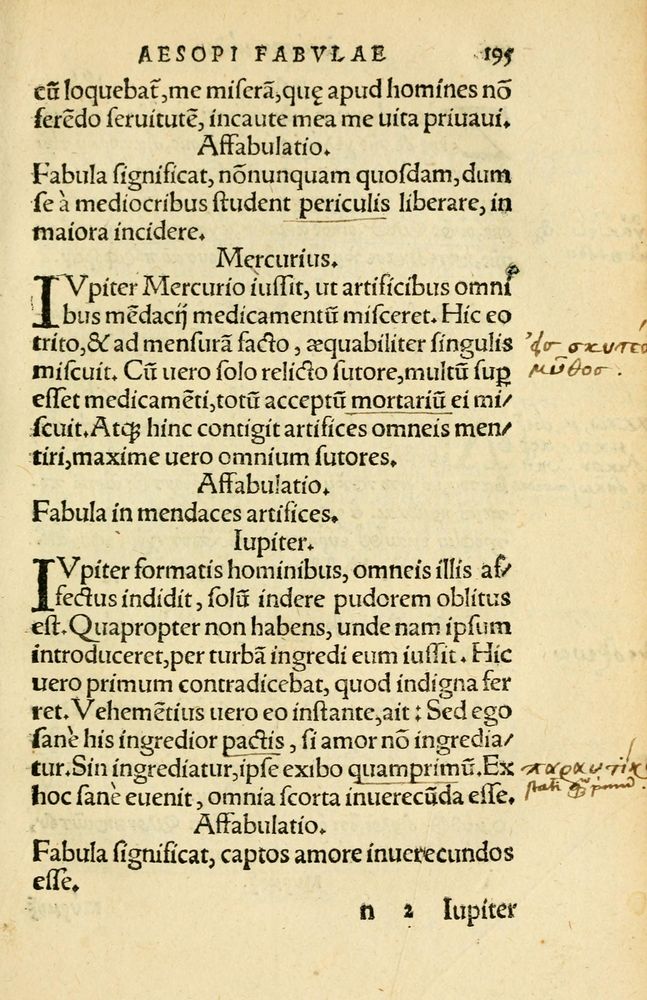 AESOPI FABVLAE 195
cũ loquebat̃, me miserã, quę apud homines nõ
ferẽdo seruitutẽ, incaute mea me uita priuaui.
Affabulatio.
Fabula significat, nõnunquam quosdam, dum
se à mediocribus student periculis liberare, in
maiora incidere.
Mercurius.
IVpiter Mercurio iussit, ut artificibus omni
bus mẽdacij medicamentũ misceret. Hic eo
trito, & ad mensurã facto, æquabiliter singulis
miscuit. Cũ uero solo relicto sutore, multũ suꝑ
esset medicamẽti, totũ acceptũ mortariũ ei mi/
scuit. Atqꝫ hinc contigit artifices omneis men/
tiri, maxime uero omnium sutores.
Affabulatio.
Fabula in mendaces artifices.
Iupiter.
IVpiter formatis hominibus, omneis illis af/
fectus indidit, solũ indere pudorem oblitus
est. Quapropter non habens, unde nam ipsum
introduceret, per turbã ingredi eum iussit. Hic
uero primum contradicebat, quod indigna fer
ret. Vehemẽtius uero eo instante, ait: Sed ego
sanè his ingredior pactis, si amor nõ ingredia/
tur. Sin ingrediatur, ipse exibo quamprimũ. Ex
hoc sanè euenit, omnia scorta inuerecũda esse.
Affabulatio.
Fabula significat, captos amore inuerecundos
esse.
n 2 Iupiter
μῦθος.